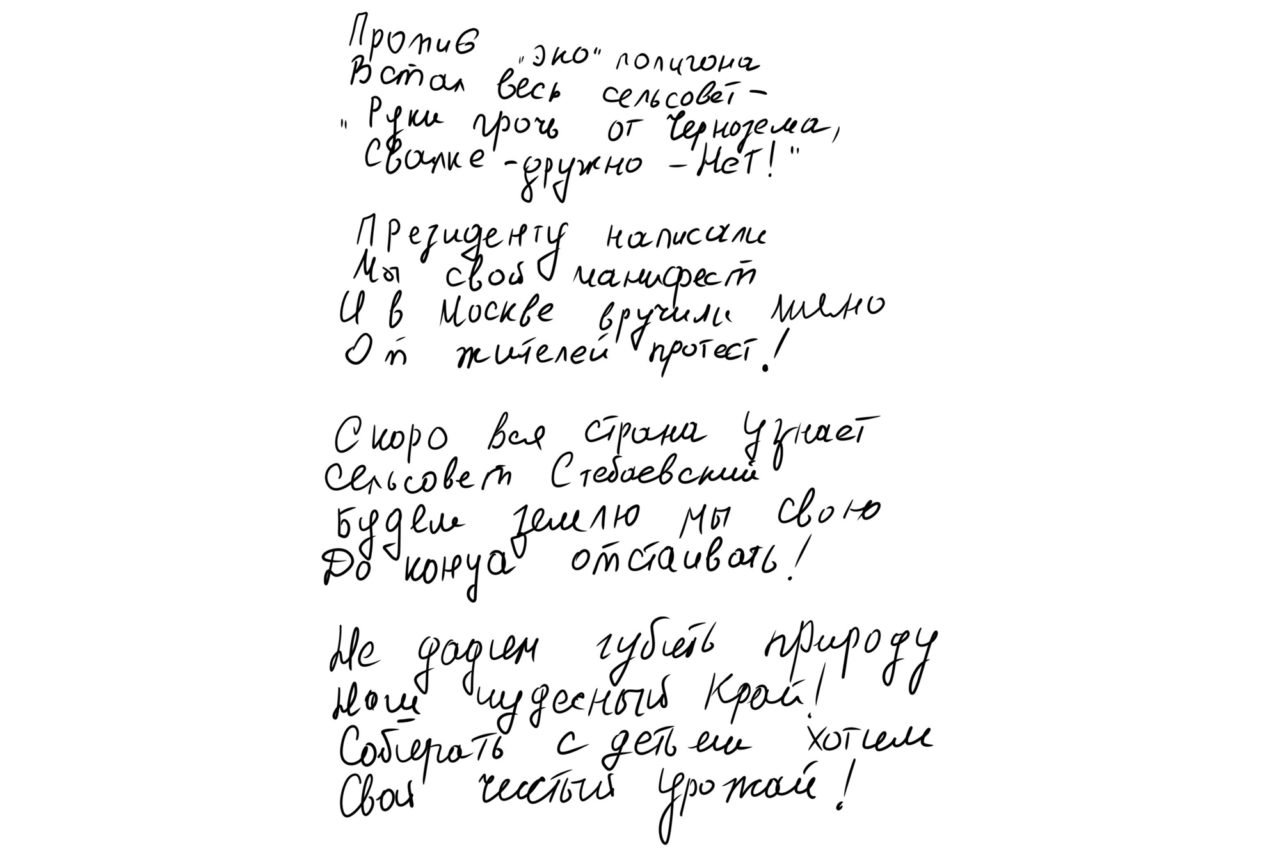 Против "эко" полигона
Встал весь сельсовет -
"Руки прочь от Чернозема,
Свалке - дружно - Нет!"
Президенту написали
Мы свой манифест
И в Москве вручили
От жителей протест!
Скоро вся страна узнает
Сельсовет Стебаевский
Будем землю мы свою
До конца отстаивать!
Не дадим губить природу
Наш чудесный Край!
Собирать с детьми хотим
Свой чистый Урожай!